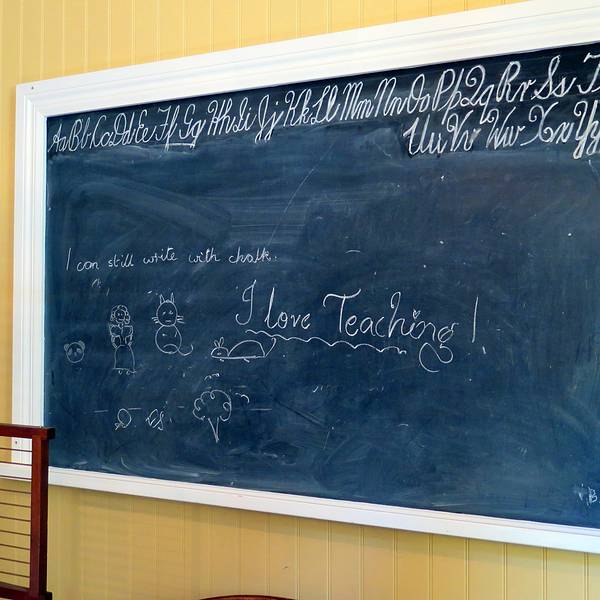 Aa Bb Cc Dd Ee Ff Gg Hh Ii Jj Kk Ll Mm Nn Oo Pp Qq Rr Ss T
Uu Vv Ww Xx Yy
I can still write with chalk.
I love Teaching!